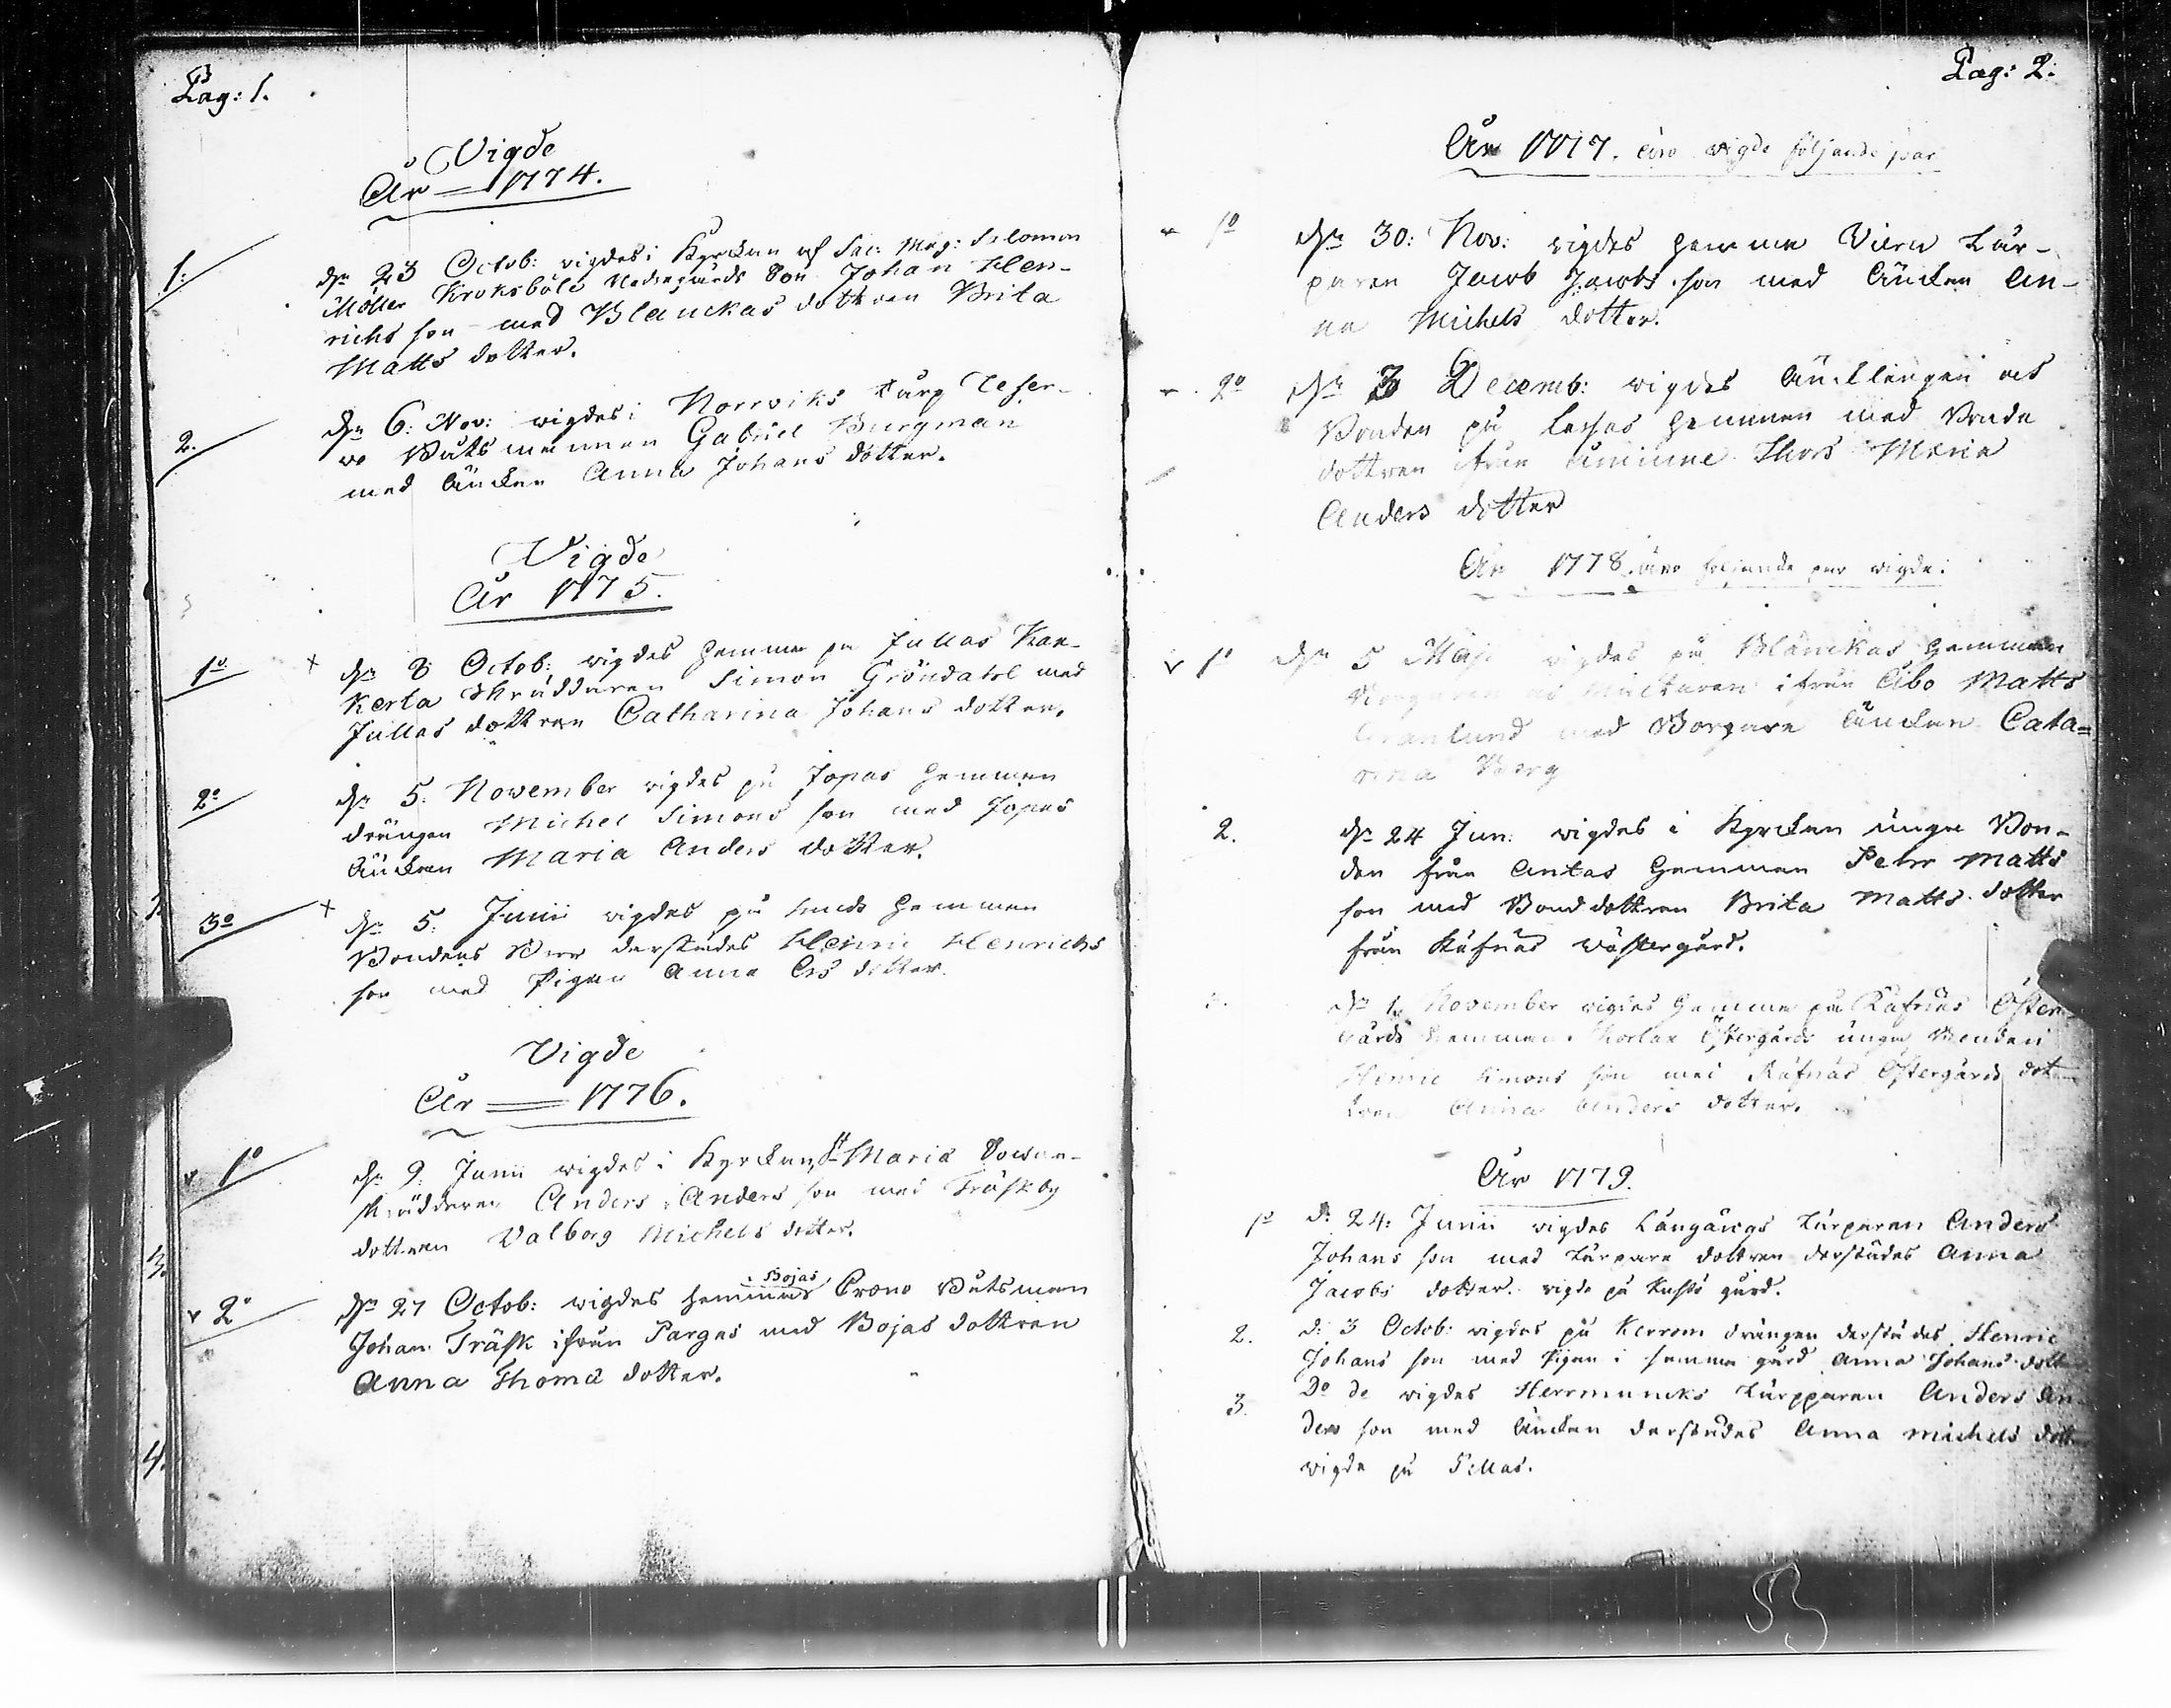 Pag: 1.
Vigde
År 1774.
1. dn 23 Octob: vigdes i Kyrckan af Sac: Mag: Salomon
Möller Kroksböle Nedergårds Son Johan Hen-
richs son med Blanckas dottren Brita
Matts dotter.
2. dn 6: Nov: vigdes i Norrviks torp Reser-
vo Båtsmannen Gabriel Burgman
med Änckan Anna Johans dotter.
Vigde
År 1775.
1o dn 8 Octob: vigdes hemma på Jullas
Kerta Skräddaren Simon Gröndahl med
Jullas dottren Catharina Johans dotter.
2o dn 5: November vigdes på Jopas hemman
drängen Michel Simons son med Jopas
Änckan Maria Anders dotter.
3o dn 5: Junii vigdes på hemman
Bondens derstädes Henric Henrichs
son med Pigan Anna Ers dotter.
Vigde
År 1776.
1o dn 9: Junii vigdes i Kyrckan St Maria Sockne-
skräddaren Anders Anders son med Träskby
dottren Valborg Michels dotter.
2o dn 27 Octob: vigdes hemma Bojas Crono Båtsman
Johan Träsk ifrån Pargas med Bojas dottren
Anna Thomä dotter.
Pag: 2:
År 1777. äro vigde följande par
1o dn 30: Nov: vigdes hemma Tår-
paren Jacob Jacobs son med Änckan An-
na Michels dotter.
2o dn 3 Decemb: vigdes Äncklingen och
Bonden på Lassas hemman med Bonde
dottren ifrån Thors Maria
Anders dotter
År 1778. äro följande par vigde:
1o dn 5 Maji vigdes på Blanckas hemman
Borgaren och ifrån Åbo Matts
Granlund med Borgare Änckan Cata=
rina Berg
2. dn 24 Jun: vigdes i Kyrckan unga Bon-
den från Antas hemman Pehr Matts
son med Bonddottren Brita Matts dotter
från Räfnäs Wästergård.
dn 1. November vigdes hemma på Räfnäs Öster
gårds hemman Östergårds unga Bonden
Henric Simons son med Räfnäs Östergårds dot
tren Anna Anders dotter.
År 1779.
1o d: 24: Junii vigdes Långängs Tårparen Anders
Johans son med Tårpare dottren derstädes Anna
Jacobs dotter. vigde på gård.
2. d: 3 Octob: vigdes på Kerrom drängen derstädes Henric
Johans son med Pigan i samma gård Anna Johans dott
3. Do de vigdes Herrmuncks Tårpparen Anders An
ders son med Änckan derstädes Anna Michels dott
vigde på Pellas.
53